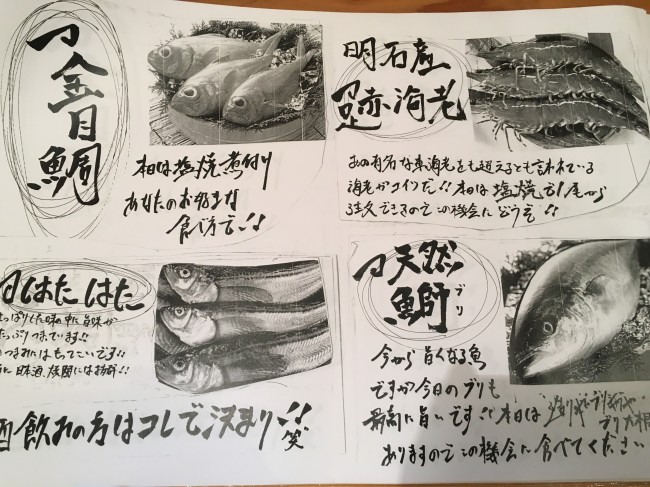 金目鯛
本日は塩焼 煮付け
あなたのお好きな
食べ方で!!
明石産
足赤海老
あの有名な車海老をも超えるとも言われている
海老がコイツだ!!本日は塩焼で1尾から
注文できるのでこの機会にどうぞ!!
はたはた
さっぱりした味の中に旨味が
たっぷりつまっています!!
つまみにはもってこいです!!
飲みの方はコレで決まり!!
笑
天然
鰤
ブリ
今から旨くなる魚
ですが今日のブリも
最高に旨いです!!本日は
ありますのでこの機会に食べてください